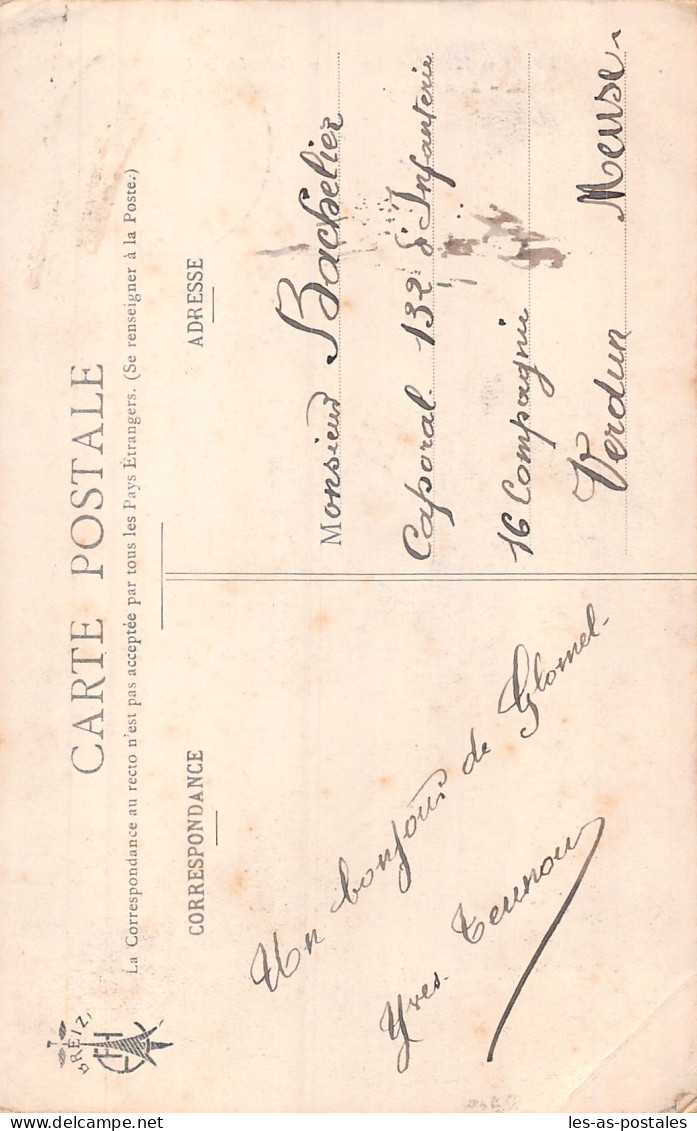 CARTE POSTALE
La Correspondance au recto n'est pas acceptée par tous les Pays Étrangers. (Se renseigner à la Poste.)
CORRESPONDANCE
ADRESSE
Un bonjour de Glomel.
Yves
Monsieur Bachelier
Caporal 132 d'Infanterie
16 Compagnie
Verdun Meuse
BREIZ
les-as-postales